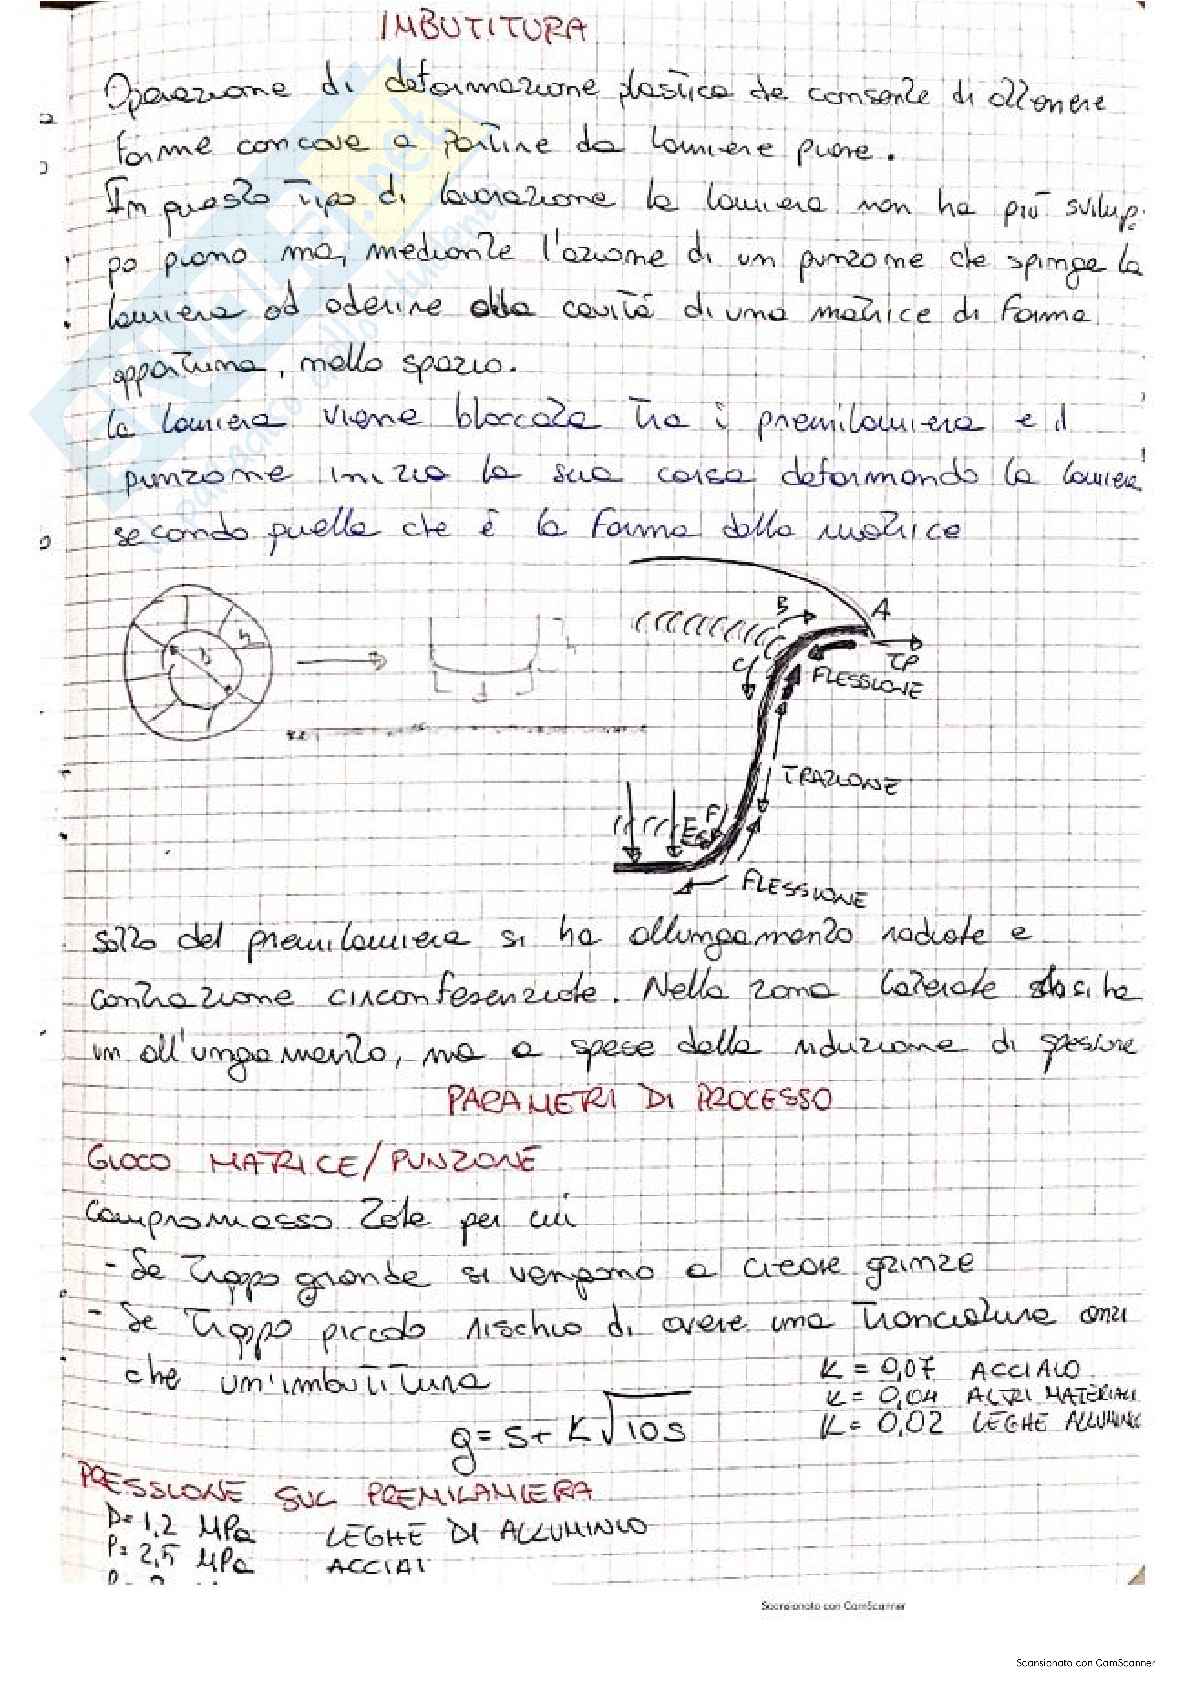 IMBUTITURA
Operazione di deformazione plastica che consente di ottenere
forme concave a partire da lamiere piane.
In questo tipo di lavorazione la lamiera non ha più svilup-
po piano ma, mediante l'azione di un punzone che spinge la
lamiera ad aderire alla cavità di una matrice di forma
opportuna, nello spazio.
La lamiera viene bloccata tra i premilamiera e il
punzone inizia la sua corsa deformando la lamiera
secondo quella che è la forma della matrice
h
D
h
d
B
A
C
TP
FLESSIONE
TRAZIONE
F
E
FLESSIONE
sotto del premilamiera si ha allungamento radiale e
contrazione circonferenziale. Nella zona laterale si ha
un all'ungamento, ma a spese della riduzione di spessore
PARAMETRI DI PROCESSO
GIOCO MATRICE/PUNZONE
Compromesso tale per cui
- Se troppo grande si vengono a creare grinze
- Se troppo piccolo rischio di avere una tranciatura anzi
che un'imbutitura
K = 0,07 ACCIAIO
K = 0,04 ALTRI MATERIALI
K = 0,02 LEGHE ALLUMINIO
g = s + K√10s
PRESSIONE SUL PREMILAMIERA
P= 1,2 MPa LEGHE DI ALLUMINIO
P= 2,5 MPa ACCIAI
Scansionato con CamScanner
Scansionato con CamScanner